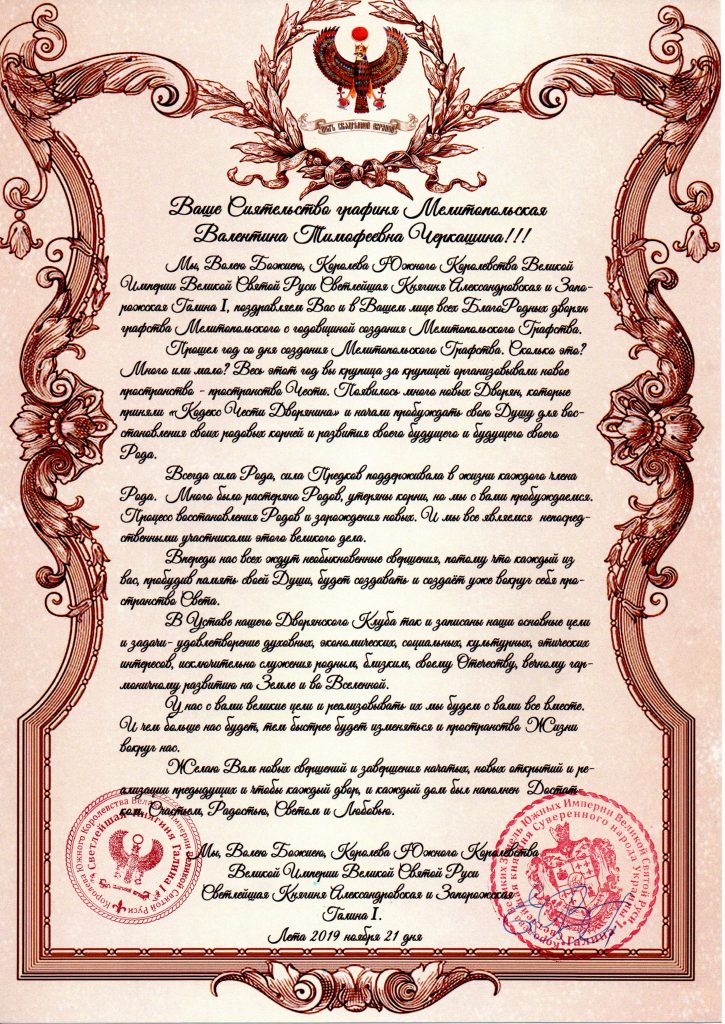 Ваше Сиятельство графиня Мелитопольская
Валентина Тимофеевна Черкашина!!!
Мы, Волею Божиею, Королева Южного Королевства Великой
Империи Великой Святой Руси Светлейшая Княгиня Александровская и Запо-
рожская Галина I, поздравляем Вас и в Вашем лице всех БлагоРодных дворян
графства Мелитопольского с годовщиной создания Мелитопольского Графства.
Прошел год со дня создания Мелитопольского Графства. Сколько это?
Много или мало? Весь этот год вы крупица за крупицей организовывали новое
пространство - пространство Чести. Появилось много новых Дворян, которые
приняли «Кодекс Чести Дворянина» и начали пробуждать свою Душу для вос-
становления своих родовых корней и развития своего будущего и будущего своего
Рода.
Всегда сила Рода, сила Предков поддерживала в жизни каждого члена
Рода. Много было растеряно Родов, утеряны корни, но мы с вами пробуждаемся.
Процесс восстановления Родов и зарождения новых. И мы все являемся непосред-
ственными участниками этого великого дела.
Впереди нас всех ждут необыкновенные свершения, потому что каждый из
вас, пробудив память своей Души, будет создавать и создаёт уже вокруг себя про-
странство Света.
В Уставе нашего Дворянского Клуба так и записаны наши основные цели
и задачи- удовлетворение духовных, экономических, социальных, культурных, этических
интересов, исключительно служения родным, близким, своему Отечеству, вечному гар-
моничному развитию на Земле и во Вселенной.
У нас с вами великие цели и реализовывать их мы будем с вами все вместе.
И чем больше нас будет, тем быстрее будет изменяться и пространство Жизни
вокруг нас.
Желаю Вам новых свершений и завершения начатых, новых открытий и ре-
ализации предыдущих и чтобы каждый двор, и каждый дом был наполнен Достат
ком, Счастьем, Радостью, Светом и Любовью.
Мы, Волею Божиею, Королева Южного Королевства
Великой Империи Великой Святой Руси
Светлейшая Княгиня Александровская и Запорожская
Галина I.
Лета 2019 ноября 21 дня
Королева Южного Королевства Великой Империи Великой Святой Руси
Светлейшая Княгиня Галина I
Южных Империи Великой Святой Руси
княгиня Суверенного народа
Галина I